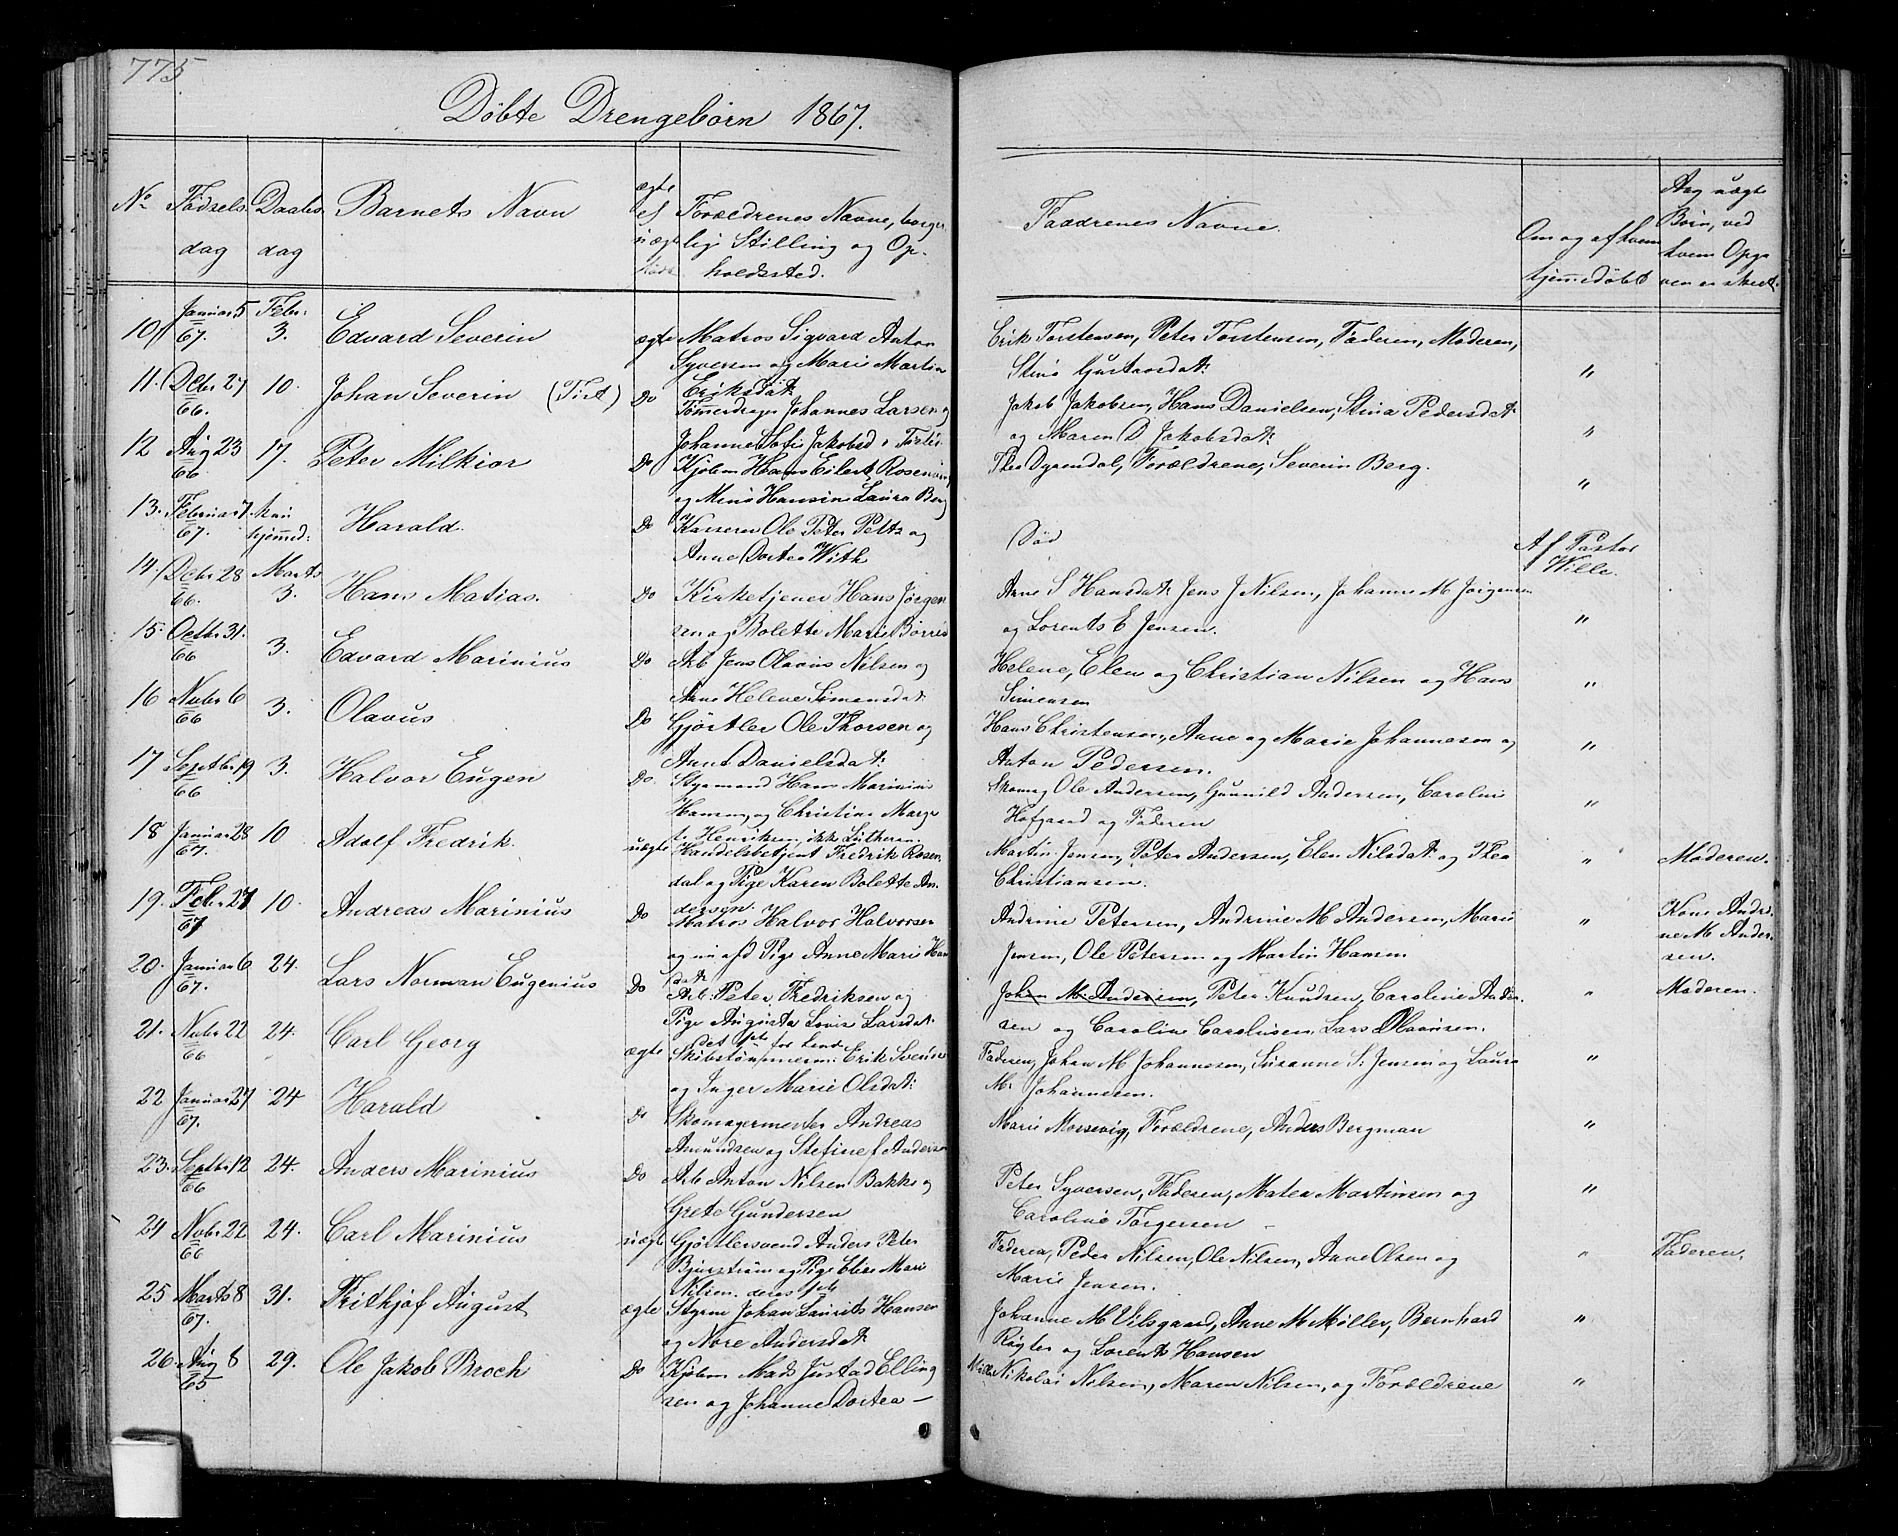 775.
Döbte Drengebörn 1867.
No Födsels dag Daabs dag Barnets Navn ægte el uægte Forældrenes Navne, borgerlig Stilling og Opholdssted. Faddrenes Navne. Om og af hvem hjemmedöbt Ang uægte Börn, ved hvem Opgaven er skeet
10. Januar 5 67. Febr. 3. Edvard Severin ægte Matros Sigvard Anton Erik Torstensen, Peter Torstensen, Faderen, Moderen,
Syversen og Marie Martin Stina Gustavsdat: "
Eriksdat:
11. Decbr 27 66. 10. Johan Severin (Tist) Do Tömmerdrager Johannes Larsen og Jakob Jakobsen, Hans Danielsen, Stina Pedersdat
Johanne Sofie Jakobsd i og Maren D Jakobsdat: "
12 Aug 23 66 17. Peter Milkior Do Kjöbm Hans Eilert Rosen Thea Dyrendal, Forældrene, Severin Berg.
og Mina Hansine Laura Berg "
13. Februar 7. 67. hjemmed: Harald. Do Ole Peter Peltz og Död Af Pastor
Anne Dortea With Wille.
14. Decbr 28 66. Marts 3. Hans Matias. Do Kirketjener Hans Jörgen Anne S Hansdat: Jens J Nilsen, Johanne M Jörgensen
sen og Bolette Marie Börres og Lorents E Jensen. "
15. Octbr 31. 66 3. Edvard Marinius Do Arb Jens Olavus Nilsen og Helene, Elen og Christian Nilsen og Hans
Anne Helene Simensdat: Simensen "
16 Nvbr 6 66 3. Olavus Do Gjörtler Ole Thorsen og Hans Christensen, Anne og Marie Johannesen og
Anne Danielsdat: Anton Pedersen. "
17 Septbr 19 66 3. Halvor Eugen Do. Styrmand Hans Marinius Skomag Ole Andersen, Gunnild Andersen, Caroline
Hansen og Christine Marge Hofgaard og Faderen "
te Henriksen, ikke Luthersn
18 Januar 28 67. 10 Adolf Fredrik. uægte Handelsbetjent Fredrik Rosen Martin Jensen, Peter Andersen, Elen Nilsdat: og Thea " Moderen.
dal og Pige Karen Bolette An Christiansen.
dersen.
19. Febr 27 67 10. Andreas Marinius Do Matros Halvor Halvorsen Andrine Petersen, Andrine M Andersen, Marie " Kone Andri
og Pige Anne Marie Han Jensen, Ole Petersen og Martin Hansen ne M Ander
sdat: sen.
20. Januar 6 67. 24. Lars Norman Eugenius Do Arb: Peter Fredriksen og Johan M. Andersen, Peter Knudsen, Caroline Ander " Moderen.
Pige Augusta Lovise Larsdat. sen og Caroline Carelusen, Lars Olavusen.
21. Nvbr 22 66 24. Carl Georg ægte Skibstömmerm: Erik Svens Faderen, Johan M Johannesen, Susanne S. Jensen og Laura "
og Inger Marie Olsdat: M. Johannesen.
22 Januar 27 67. 24 Harald Do Skomagermester Andreas Marie Morsevig, Forældrene, Anders Bergman "
Amundsen og Stefine f Anderson
23. Septbr 12 66 24. Anders Marinius Do Arb Anton Nilsen Bakke og Peter Syversen, Faderen, Matea Martinsen og "
Grete Gundersen Caroline Torgersen —
24 Nvbr 22 66 24. Carl Marinius uægte Gjörtlersvend Anders Peter Faderen, Peder Nilsen, Ole Nilsen, Anne Olsen og " Faderen.
Bjurström og Pige Elise Marie Marie Jensen.
Nilsen. deres 1ste
25 Marts 8 67. 31. Frithjof August ægte Styrm Johan Laurits Hansen Johanne M Vilsgaard, Anne M Möller, Bernhard "
og Nore Andersdat: og Lorents Hansen
26 Aug 8 65 29. Ole Jakob Broch Do Kjöbm Mads Justad Elling Nikolai Nilsen, Maren Nilsen, og Forældrene "
sen og Johanne Dortea —